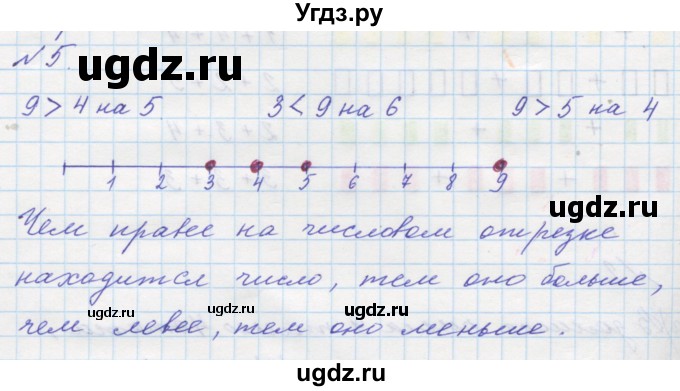 Угдз.ру
№5.
ugdz.ru
9 > 4 на 5 3 < 9 на 6 9 > 5 на 4
1 2 3 4 5 6 7 8 9
ugdz.ru
Чем правее на числовом отрезке
находится число, тем оно больше,
ugdz.ru ugdz.ru
чем левее, тем оно меньше.
ugdz.ru